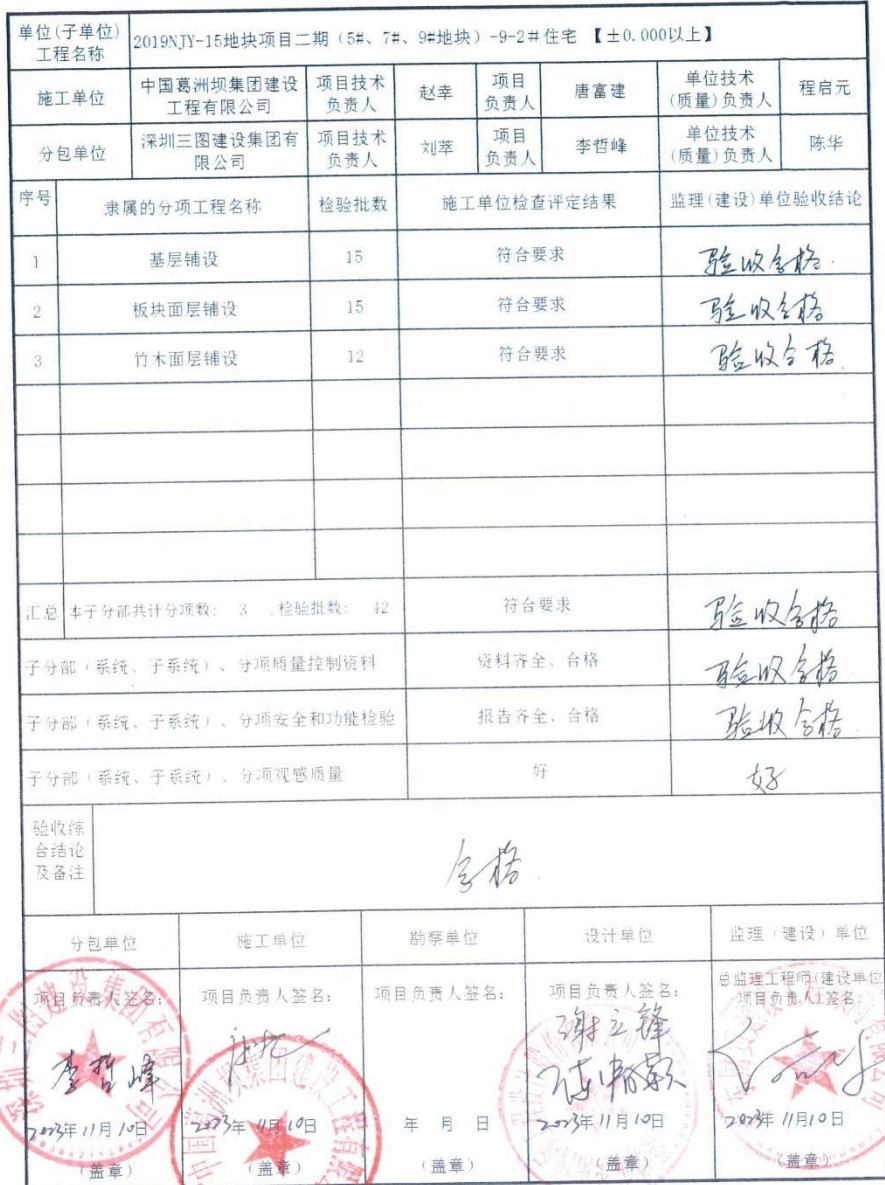 单位(子单位)
工程名称
2019NJY-15地块项目二期（5#、7#、9#地块）-9-2#住宅 【±0.000以上】
施工单位
中国葛洲坝集团建设
工程有限公司
项目技术
负责人
赵幸
项目
负责人
唐富建
单位技术
(质量)负责人
程启元
分包单位
深圳三图建设集团有
限公司
项目技术
负责人
刘萃
项目
负责人
李哲峰
单位技术
(质量)负责人
陈华
序号
隶属的分项工程名称
检验批数
施工单位检查评定结果
监理(建设)单位验收结论
1
基层铺设
15
符合要求
验收合格.
2
板块面层铺设
15
符合要求
验收合格
3
竹木面层铺设
12
符合要求
验收合格
汇总
本子分部共计分项数： 3 .检验批数： 42
符合要求
验收合格
子分部（系统、子系统）、分项质量控制资料
资料齐全、合格
验收合格
子分部（系统、子系统）、分项安全和功能检验
报告齐全、合格
验收合格
子分部（系统、子系统）、分项观感质量
好
好
验收综
合结论
及备注
合格.
分包单位
施工单位
勘察单位
设计单位
监理（建设）单位
项目负责人签名：
项目负责人签名：
项目负责人签名：
项目负责人签名：
总监理工程师(建设单位
项目负责人)签名：
李哲峰
谢立锋
2023年11月10日
2023年11月10日
年 月 日
2023年11月10日
2023年11月10日
（盖章）
（盖章）
（盖章）
（盖章）
（盖章）